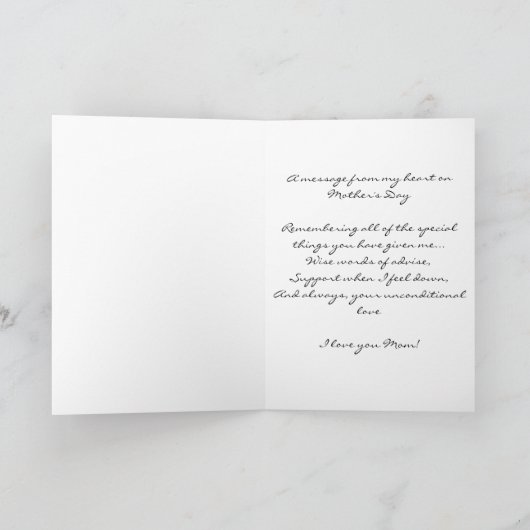 A message from my heart on
Mother's Day
Remembering all of the special
things you have given me...
Wise words of advise,
Support when I feel down,
And always, your unconditional
love
I love you Mom!